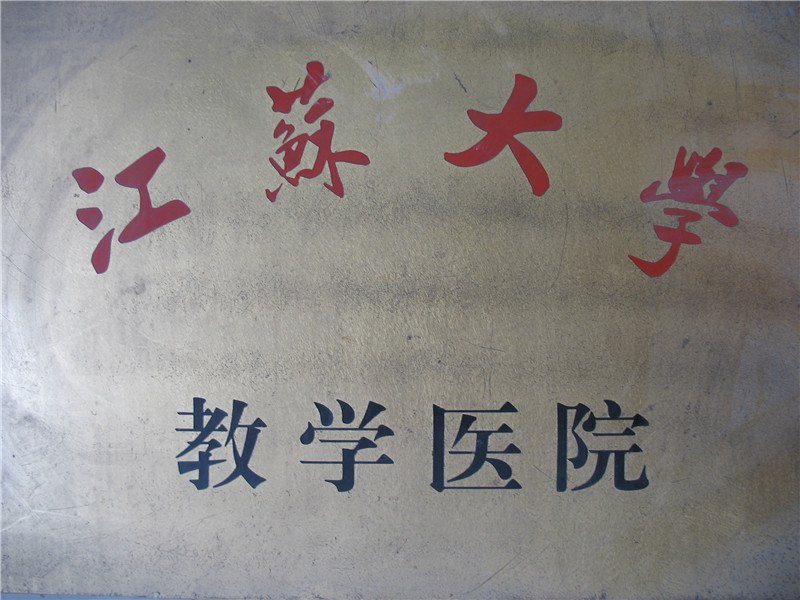 江蘇大學
教学医院